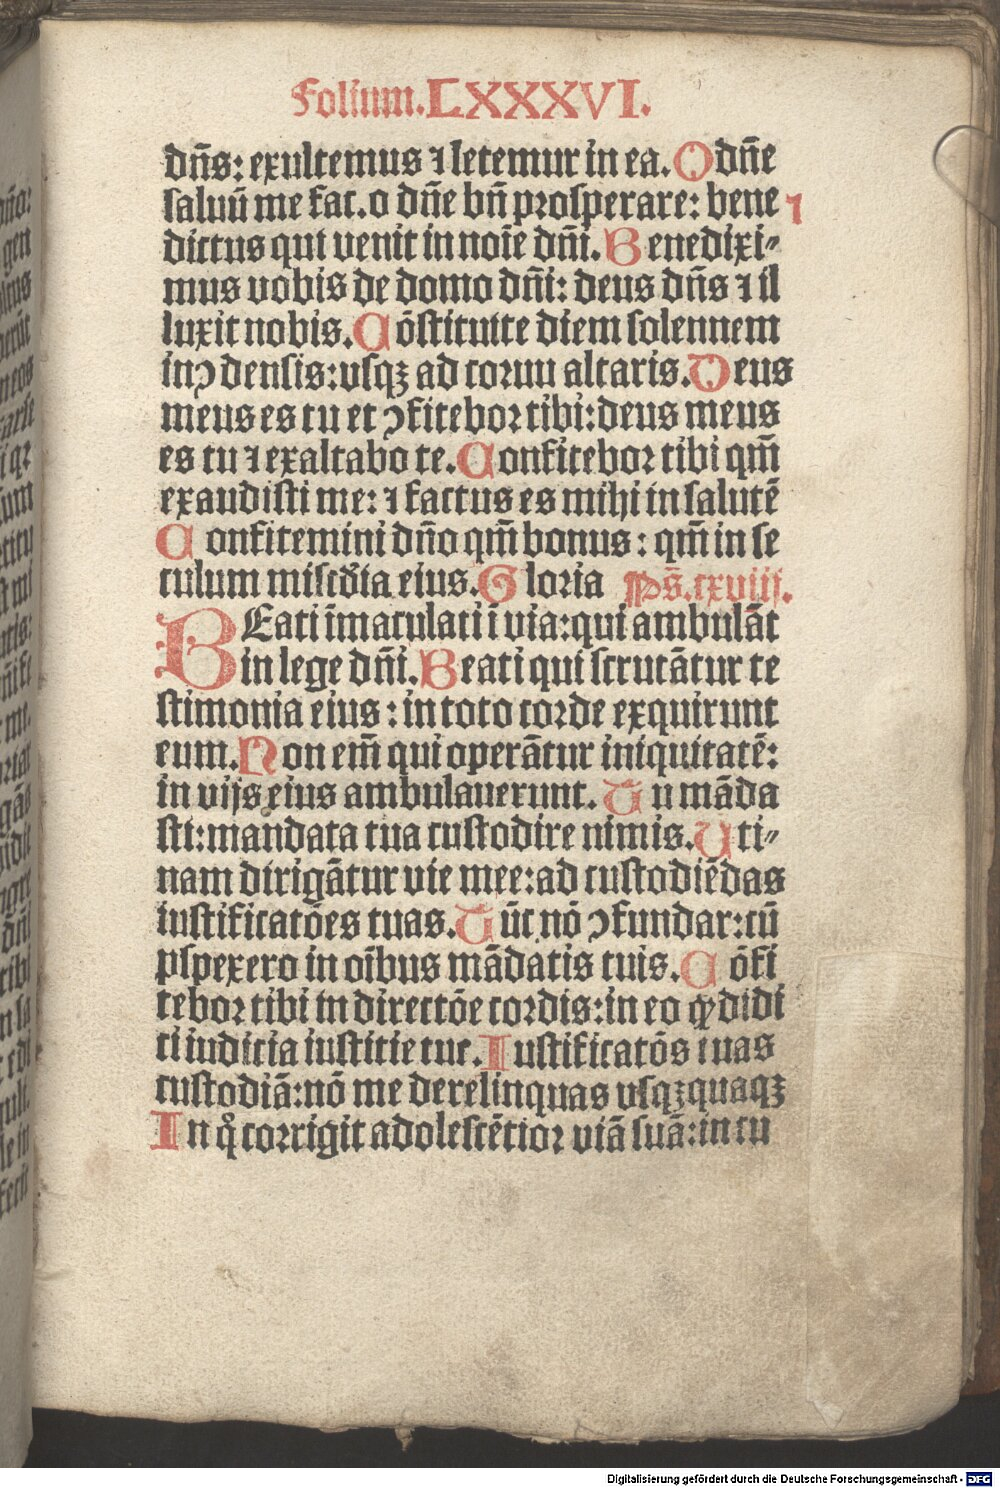 Folium.LXXXVI.
dn̄s: exultemus ⁊ letemur in ea. O dn̄e
saluū me fac. o dn̄e bn̄ prosperare: bene
dictus qui venit in noīe dn̄i. Benedixi⸗
mus vobis de domo dn̄i: deus dn̄s ⁊ il
luxit nobis. Cōstituite diem solennem
in ꝯdensis: vsqꝫ ad cornu altaris. Deus
meus es tu et ꝯfitebor tibi: deus meus
es tu ⁊ exaltabo te. Confitebor tibi qm̄
exaudisti me: ⁊ factus es mihi in salutē
Confitemini dn̄o qm̄ bonus: qm̄ in se
culum miscd̄ia eius. Gloria Ps̄.cxviij.
BEati īmaculati ī via: qui ambulāt
in lege dn̄i. Beati qui scrutātur te
stimonia eius: in toto corde exquirunt
eum. Non em̄ qui operātur iniquitatē:
in vijs eius ambulauerunt. Tu māda
sti: mandata tua custodire nimis. Uti⸗
nam dirigātur vie mee: ad custodiēdas
iustificatōes tuas. Tūc nō ꝯfundar: cū
ꝑspexero in oībus mādatis tuis. Cōfi
tebor tibi in directōe cordis: in eo ꝙ didi
ci iudicia iusticie tue. Iustificatōs tuas
custodiā: nō me derelinquas vsqꝫquaqꝫ
In qͦ corrigit adolescētior viā suā: in cu
Digitalisierung gefördert durch die Deutsche Forschungsgemeinschaft - DFG